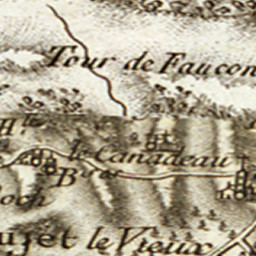 Tour de Faucon
H.te
le Canadeau
B.des
och
ujet le Vieux